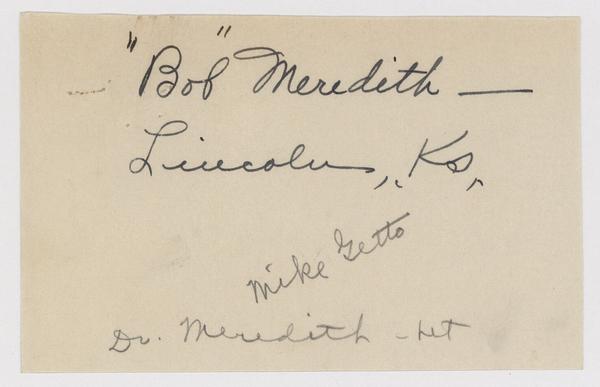 "Bob" Meredith —
Lincoln, Ks,
Mike Getto
Dr. Meredith - let